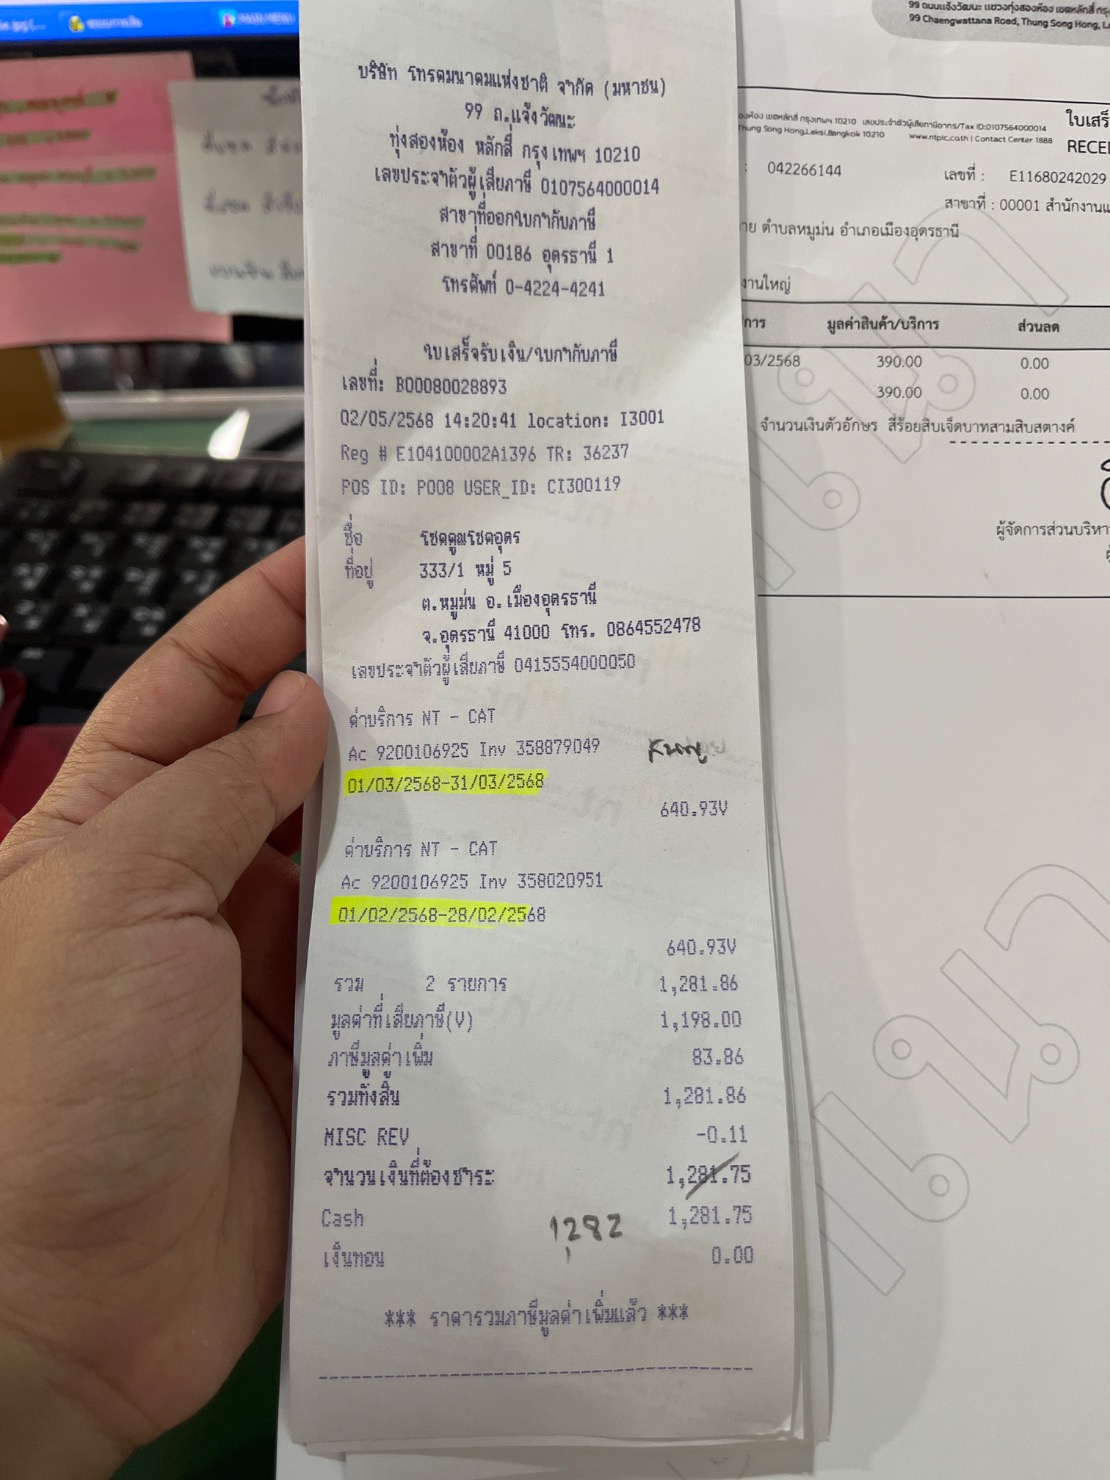 บริษัท โทรคมนาคมแห่งชาติ จำกัด (มหาชน)
99 ถ.แจ้งวัฒนะ
ทุ่งสองห้อง หลักสี่ กรุงเทพฯ 10210
เลขประจำตัวผู้เสียภาษี 0107564000014
สาขาที่ออกใบกำกับภาษี
สาขาที่ 00186 อุดรธานี 1
โทรศัพท์ 0-4224-4241
ใบเสร็จรับเงิน/ใบกำกับภาษี
เลขที่: B00080028893
02/05/2568 14:20:41 location: I3001
Reg # E104100002A1396 TR: 36237
POS ID: P008 USER_ID: CI300119
ชื่อ โชคคูณโชคอุดร
ที่อยู่ 333/1 หมู่ 5
ต.หมูม่น อ.เมืองอุดรธานี
จ.อุดรธานี 41000 โทร. 0864552478
เลขประจำตัวผู้เสียภาษี 0415554000050
ค่าบริการ NT - CAT
Ac 9200106925 Inv 358879049
01/03/2568-31/03/2568
640.93V
ค่าบริการ NT - CAT
Ac 9200106925 Inv 358020951
01/02/2568-28/02/2568
640.93V
รวม 2 รายการ 1,281.86
มูลค่าที่เสียภาษี(V) 1,198.00
ภาษีมูลค่าเพิ่ม 83.86
รวมทั้งสิ้น 1,281.86
MISC REV -0.11
จำนวนเงินที่ต้องชำระ 1,281.75
Cash 1,281.75
1,282
เงินทอน 0.00
*** ราคารวมภาษีมูลค่าเพิ่มแล้ว ***
99 ถนนแจ้งวัฒนะ แขวงทุ่งสองห้อง เขตหลักสี่
99 Chaengwattana Road, Thung Song Hong,
เขตหลักสี่ กรุงเทพฯ 10210 เลขประจำตัวผู้เสียภาษีอากร/Tax ID:0107564000014
Thung Song Hong,Laksi,Bangkok 10210 www.ntplc.co.th | Contact Center 1888
: 042266144
เลขที่ : E11680242029
สาขาที่ : 00001
ตำบลหมูม่น อำเภอเมืองอุดรธานี
งานใหญ่
การ มูลค่าสินค้า/บริการ ส่วนลด
03/2568 390.00 0.00
390.00 0.00
จำนวนเงินตัวอักษร สี่ร้อยสิบเจ็ดบาทสามสิบสตางค์
ผู้จัดการส่วนบริหาร
สำเนา
MAIN MENU